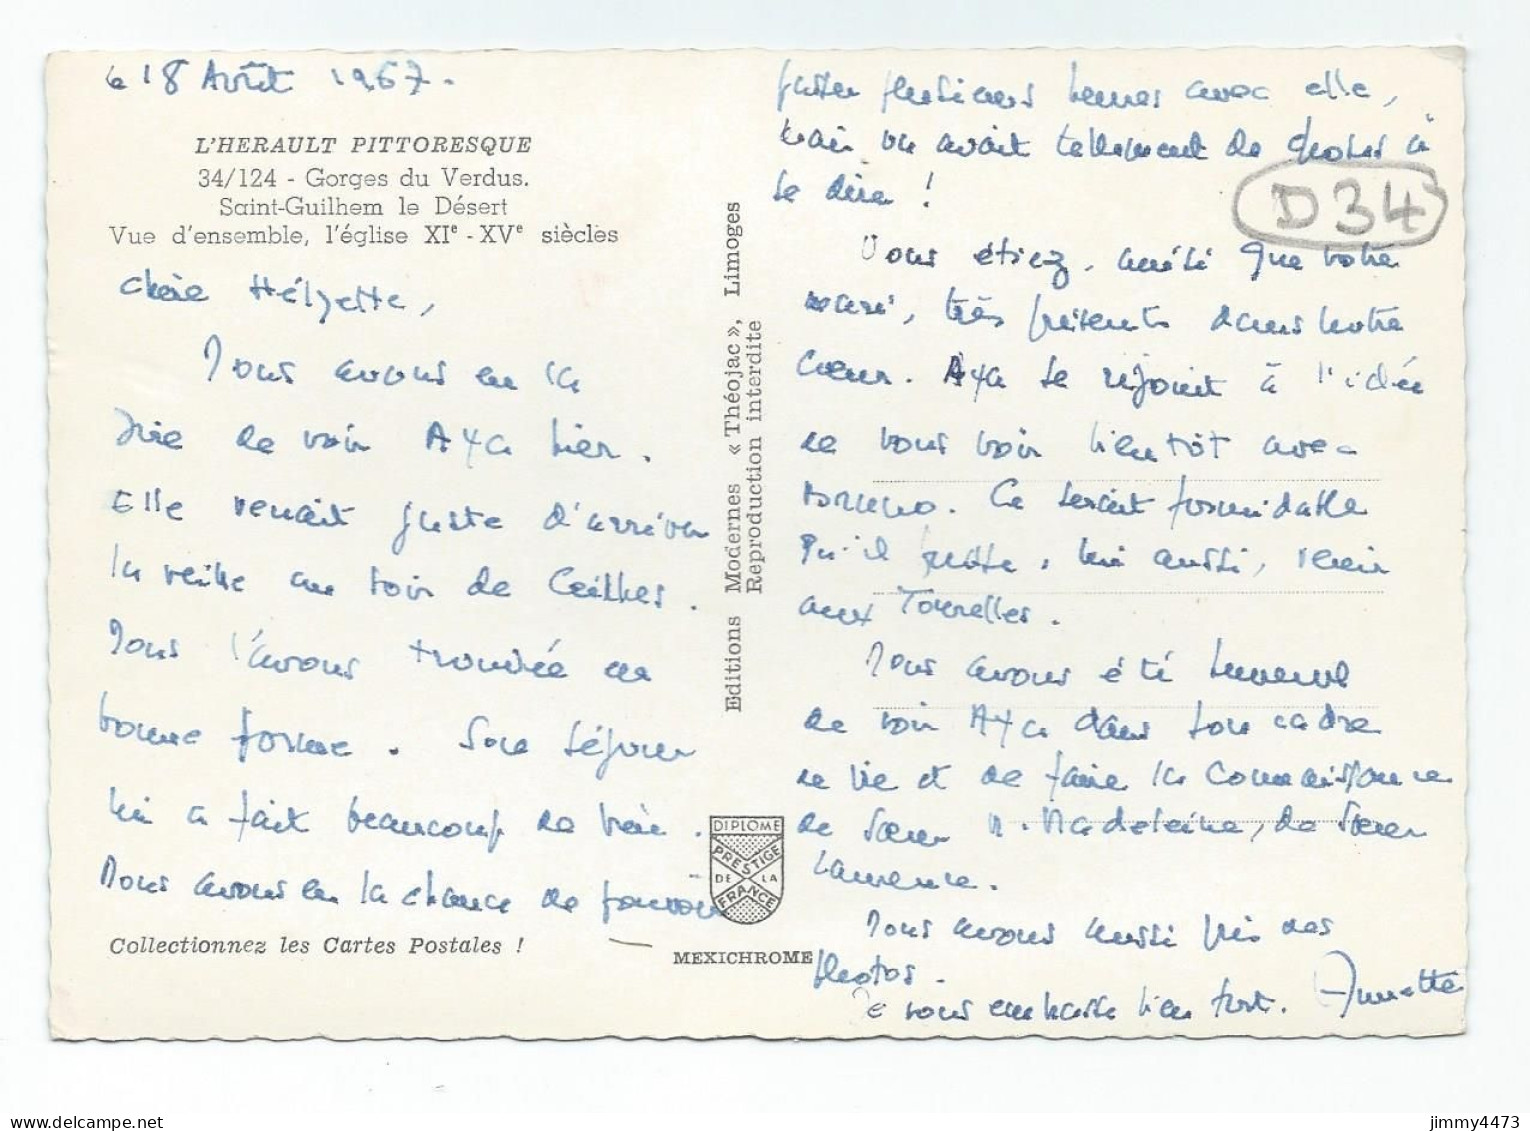 Le 18 Août 1967.
L'HERAULT PITTORESQUE
34/124 - Gorges du Verdus.
Saint-Guilhem le Désert
Vue d'ensemble, l'église XIe - XVe siècles
Chère Hélyette,
Nous avons eu la
joie de voir Aya hier.
Elle venait juste d'arriver
la veille au soir de Ceilhes.
Nous l'avons trouvée en
bonne forme. Son séjour
lui a fait beaucoup de bien.
Nous avons eu la chance de pouvoir
Collectionnez les Cartes Postales !
Editions Modernes « Théojac », Limoges
Reproduction interdite
DIPLOME
PRESTIGE
DE LA
FRANCE
MEXICHROME
passer plusieurs heures avec elle,
mais on avait tellement de choses à
se dire !
D34
Vous étiez, ainsi que votre
mari, très présents dans notre
cœur. Aya se réjouit à l'idée
de vous voir bientôt avec
Bruno. Ce serait formidable
qu'il puisse, lui aussi, venir
aux Tourelles.
Nous avons été heureux
de voir Aya dans son cadre
de vie et de faire la connaissance
de Sœur M. Madeleine, de Sœur
Laurence.
Nous avons aussi pris des
photos.
Je vous embrasse bien fort. Annette
jimmy4473
www.delcampe.net